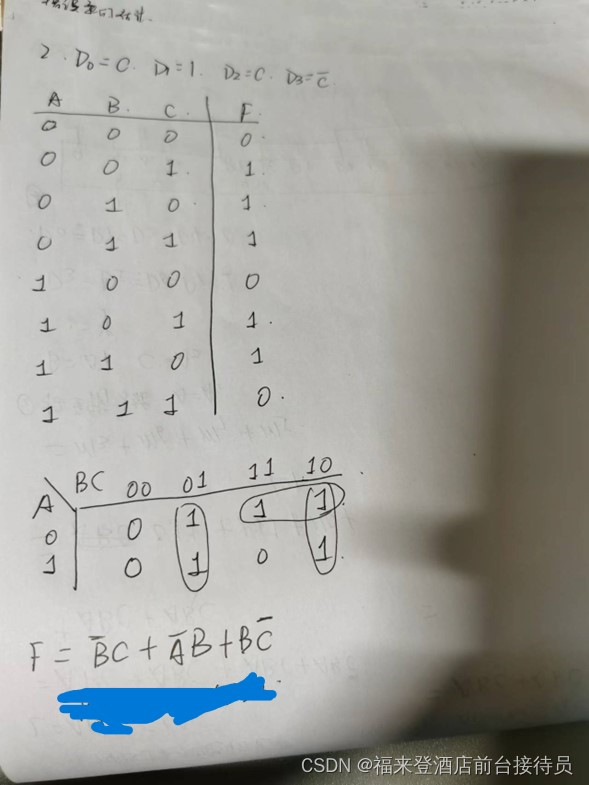 2. D₀=C. D₁=1. D₂=C. D₃=C̅
A B. C. F.
0 0 0 0.
0 0 1. 1.
0 1 0. 1.
0 1 1 1
1 0 0 0
1 0 1 1.
1 1 0 1
1 1 1 0.
A BC 00 01 11 10
0 0 1 1 1
1 0 1 0 1.
F = B̅C + A̅B + BC̅
CSDN @福来登酒店前台接待员